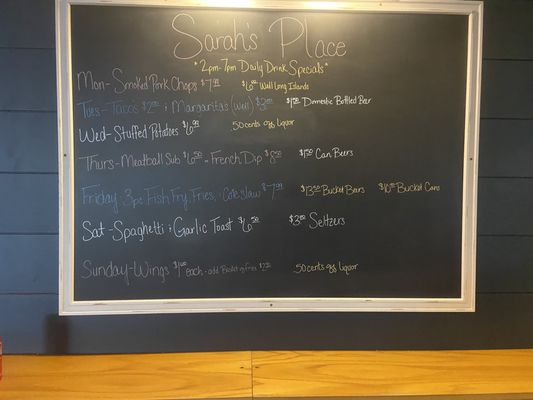 Sarah's Place
*2pm-7pm Daily Drink Specials*
Mon- Smoked Pork Chops $7.99 $6.00 Well Long Islands
Tues-Taco's $2.00 & Margaritas (Well) $3.00 $1.50 Domestic Bottled Bar
Wed-Stuffed Potatoes $6.99 50 cents off Liquor
Thurs-Meatball Sub $6.50 - French Dip $8.50 $1.50 Can Beers
Friday 3pc Fish Fry, Fries, & Coleslaw $7.99 $13.50 Bucket Bars $10.00 Bucket Cans
Sat-Spaghetti & Garlic Toast $6.50 $3.00 Seltzers
Sunday-Wings each-add Basket of Fries 50 cents off Liquor